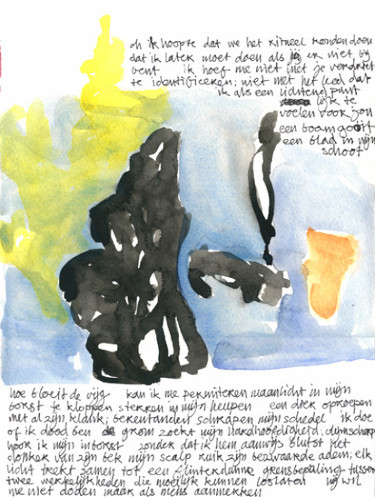 oh ik hoopte dat we het ritueel konden doen
dat ik later moet doen als jij er niet bij
bent ik hoef me niet met je verdriet
te identificeren; niet met het feit dat
ik als een lichtend punt
lijk te
voelen voor jou
een boom gooit
een blad in mijn
schoot
hoe bloeit de vijg kan ik me permitteren maanlicht in mijn
borst te kloppen sterren in mijn heupen een dier oproepen
met al zijn klank; berentanden schrapen mijn schedel ik doe
of ik dood ben de grom zoekt mijn hardhoofdigheid
hoor ik mijn inborst zonder dat ik hem aanwijs blutst het
donker van zijn bek mijn scalp ruik zijn bezwaarde adem; elk
licht trekt samen tot een flinterdunne grensbepaling tussen
twee werkelijkheden die moeilijk kunnen loslaten hij wil
me niet doden maar als mens aanmerken